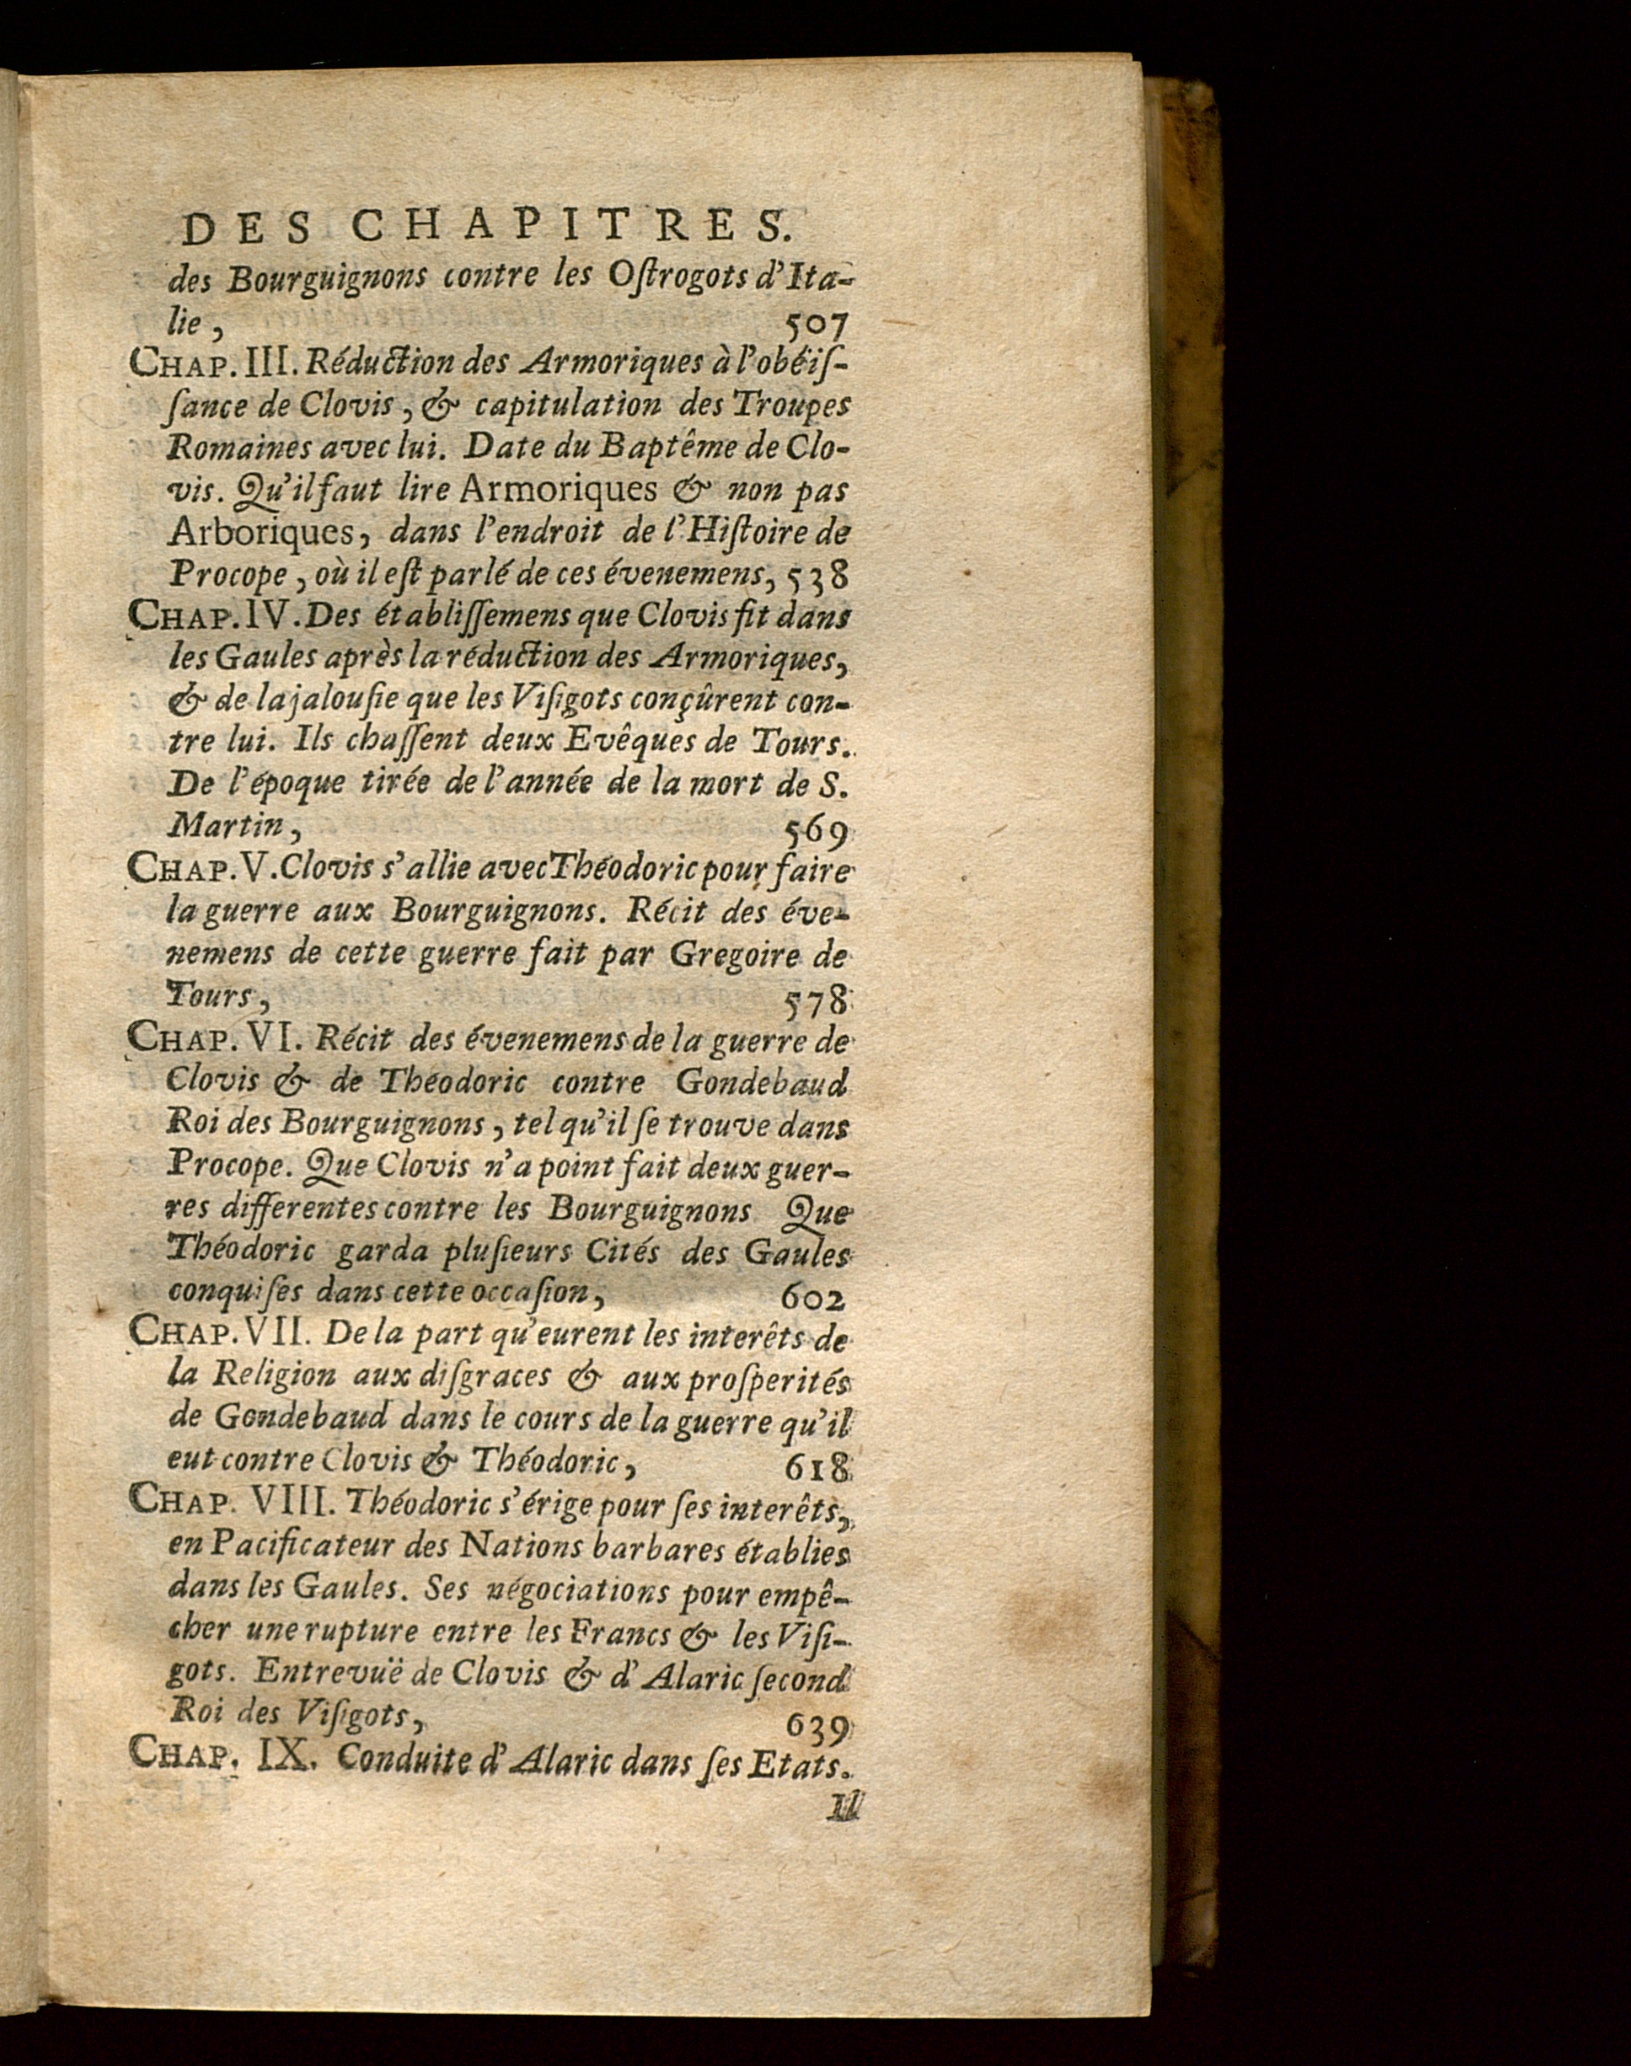 DES CHAPITRES.
des Bourguignons contre les Oſtrogots d'Ita-
lie, 507
CHAP. III. Réduction des Armoriques à l'obéiſ-
ſance de Clovis, & capitulation des Troupes
Romaines avec lui. Date du Baptême de Clo-
vis. Qu'il faut lire Armoriques & non pas
Arboriques, dans l'endroit de l'Hiſtoire de
Procope, où il eſt parlé de ces évenemens, 538
CHAP. IV. Des établiſſemens que Clovis fit dans
les Gaules après la réduction des Armoriques,
& de la jalouſie que les Viſigots conçûrent con-
tre lui. Ils chaſſent deux Evêques de Tours.
De l'époque tirée de l'année de la mort de S.
Martin, 569
CHAP. V. Clovis s'allie avec Théodoric pour faire
la guerre aux Bourguignons. Récit des éve-
nemens de cette guerre fait par Gregoire de
Tours, 578
CHAP. VI. Récit des évenemens de la guerre de
Clovis & de Théodoric contre Gondebaud
Roi des Bourguignons, tel qu'il ſe trouve dans
Procope. Que Clovis n'a point fait deux guer-
res differentes contre les Bourguignons Que
Théodoric garda pluſieurs Cités des Gaules
conquiſes dans cette occaſion, 602
CHAP. VII. De la part qu'eurent les interêts de
la Religion aux diſgraces & aux proſperités
de Gondebaud dans le cours de la guerre qu'il
eut contre Clovis & Théodoric, 618
CHAP. VIII. Théodoric s'érige pour ſes interêts,
en Pacificateur des Nations barbares établies
dans les Gaules. Ses négociations pour empê-
cher une rupture entre les Francs & les Viſi-
gots. Entrevuë de Clovis & d'Alaric ſecond
Roi des Viſigots, 639
CHAP. IX. Conduite d'Alaric dans ſes Etats.
Il